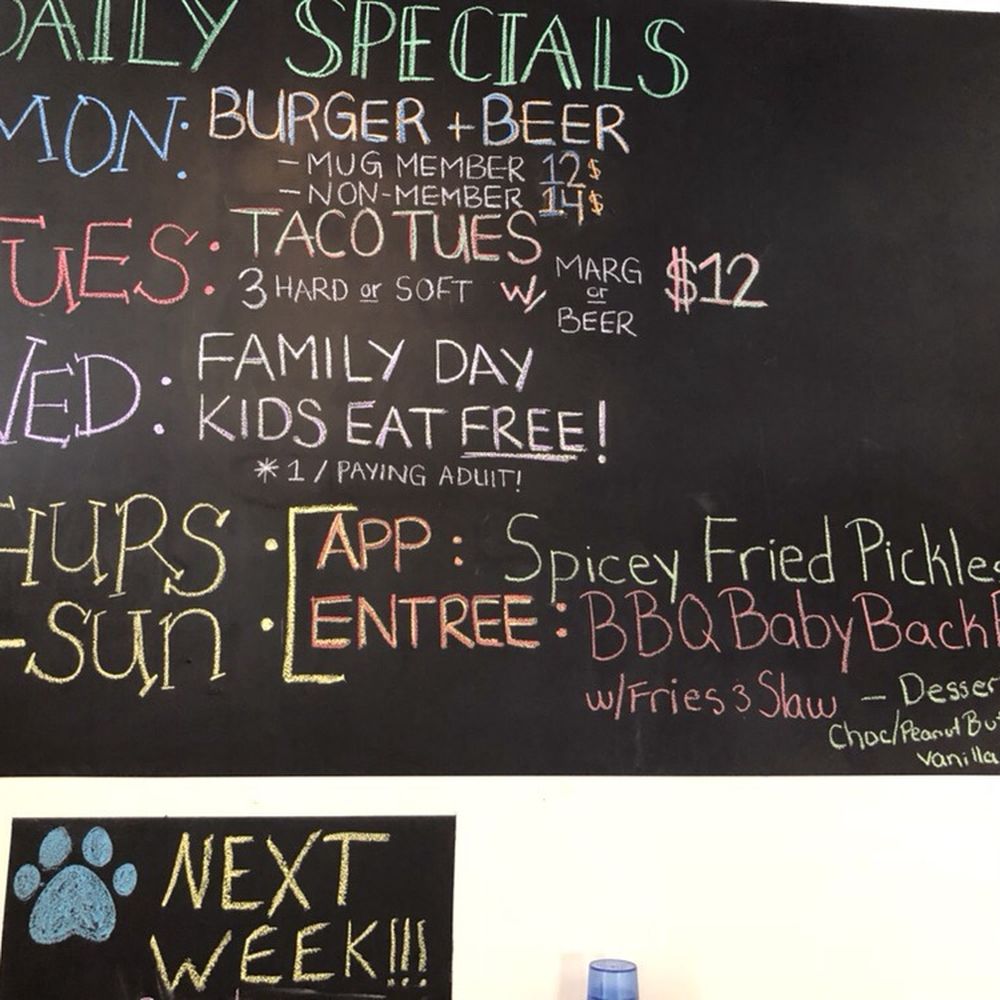 DAILY SPECIALS
MON: BURGER + BEER
- MUG MEMBER 12$
- NON-MEMBER 14$
TUES: TACO TUES
3 HARD or SOFT w/ MARG or BEER $12
WED: FAMILY DAY
KIDS EAT FREE!
*1/PAYING ADULT!
THURS : APP: Spicey Fried Pickles
-SUN : ENTREE: BBQ Baby Back
w/Fries & Slaw - Desser
Choc/Peanut But
Vanilla
NEXT
WEEK!!!